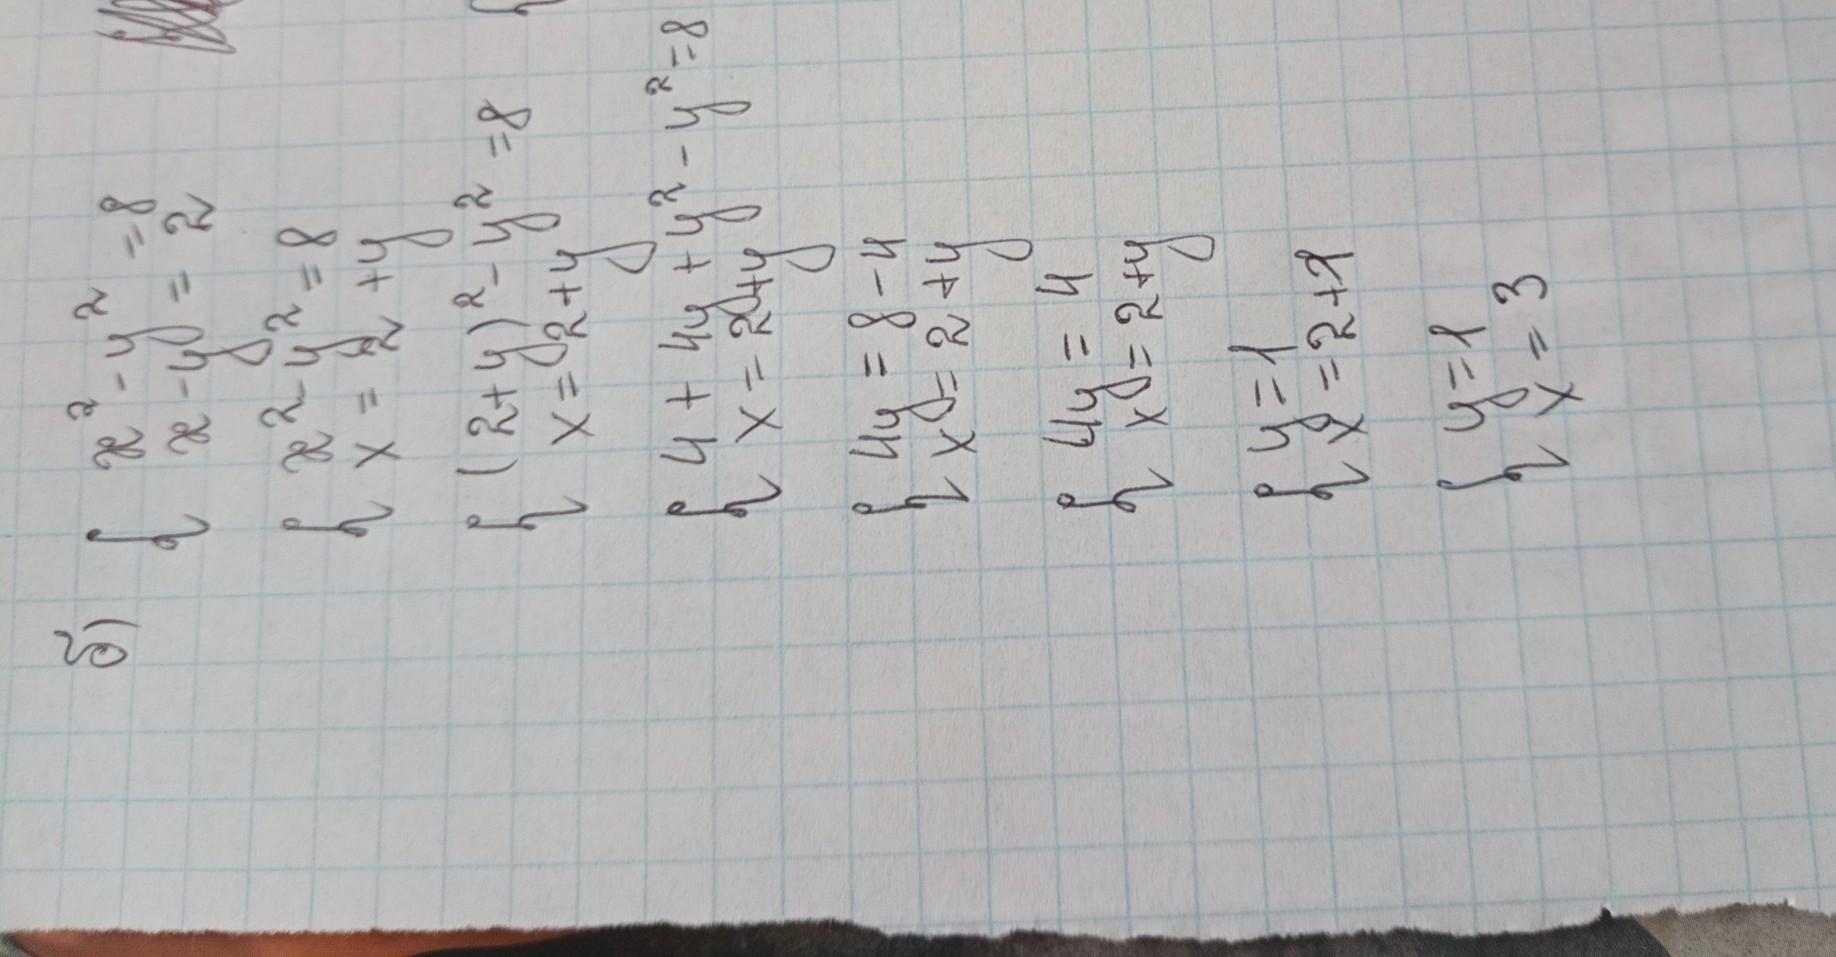 б)
{ x² - y² = 8
x - y = 2
{ x² - y² = 8
x = 2 + y
{ (2 + y)² - y² = 8
x = 2 + y
{ 4 + 4y + y² - y² = 8
x = 2 + y
{ 4y = 8 - 4
x = 2 + y
{ 4y = 4
x = 2 + y
{ y = 1
x = 2 + 1
{ y = 1
x = 3